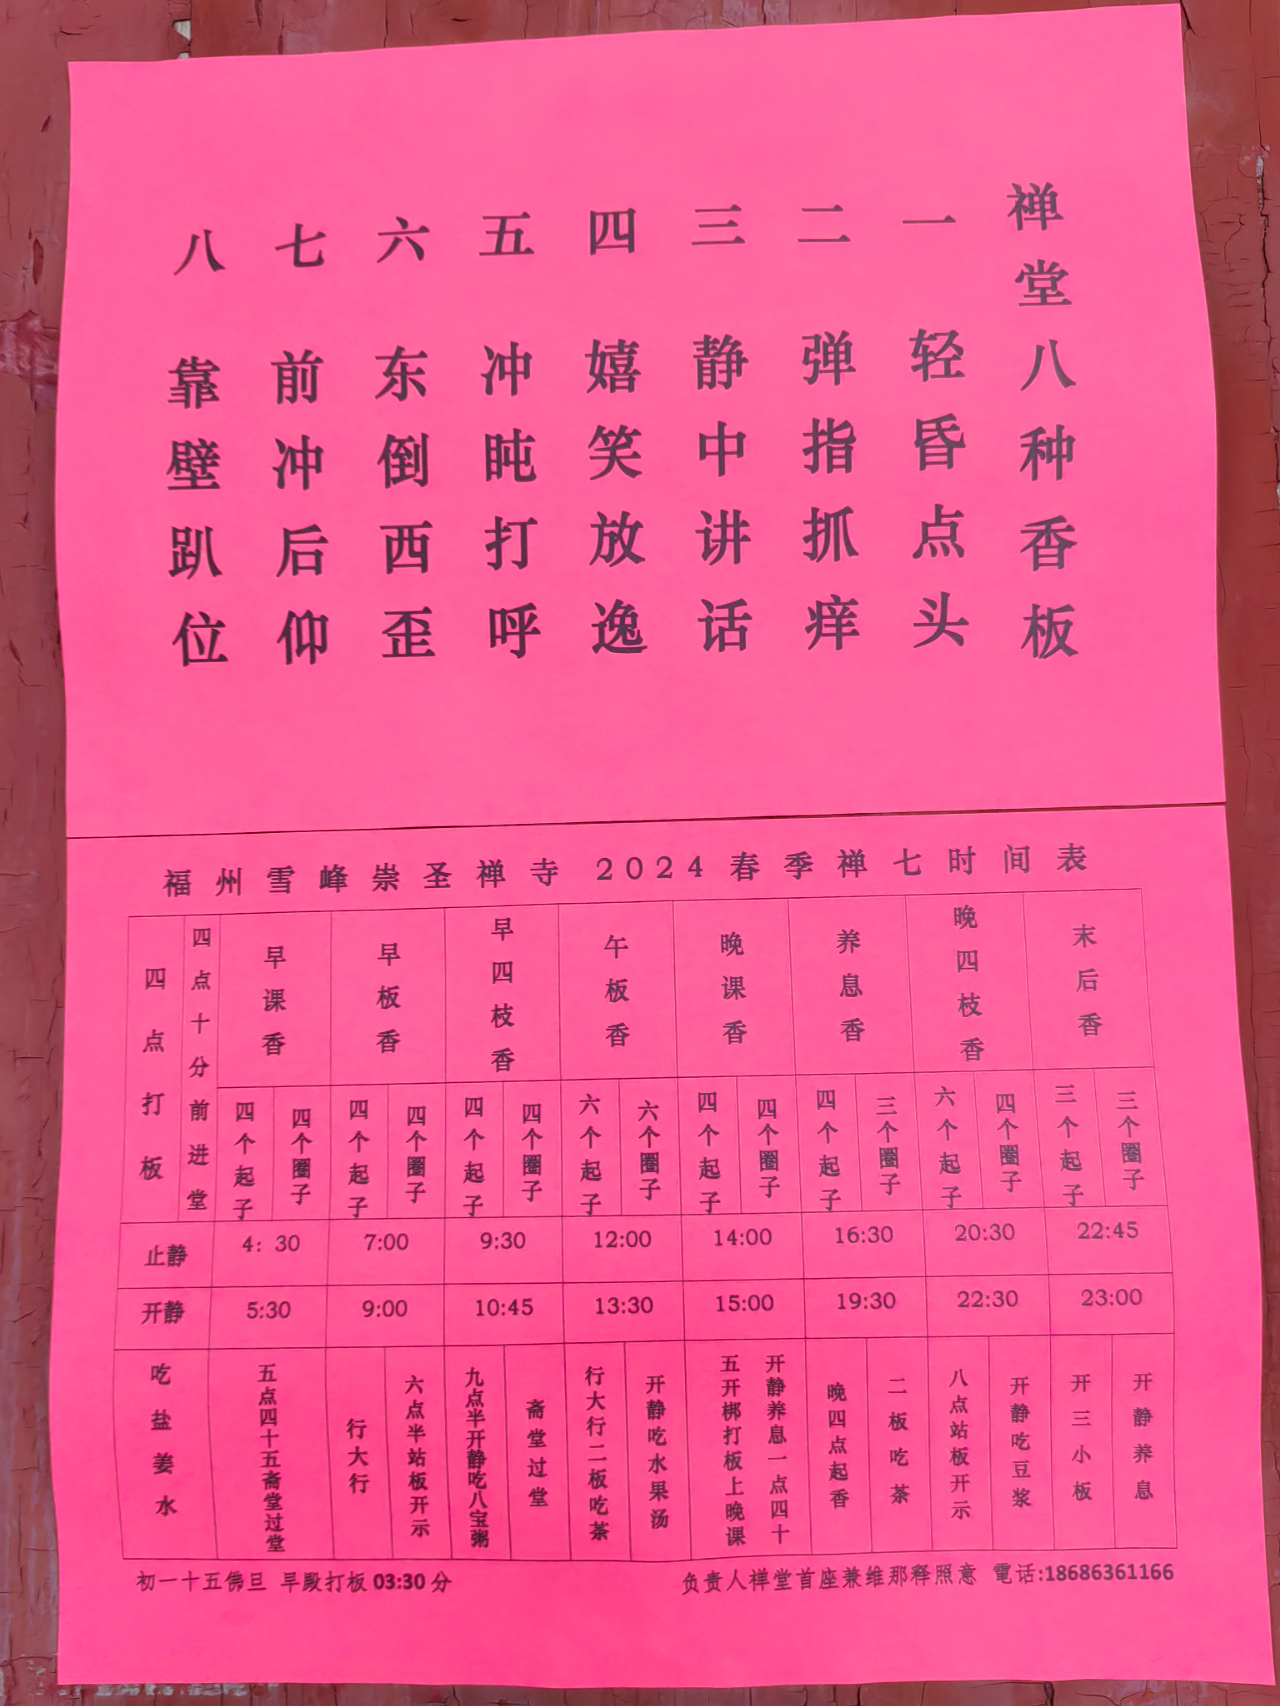 禅堂八种香板
一 轻昏点头
二 弹指抓痒
三 静中讲话
四 嬉笑放逸
五 冲盹打呼
六 东倒西歪
七 前冲后仰
八 靠壁趴位
福州雪峰崇圣禅寺2024春季禅七时间表
四点打板
四点十分前进堂
早课香
早板香
早四枝香
午板香
晚课香
养息香
晚四枝香
末后香
四个起子
四个圈子
四个起子
四个圈子
四个起子
四个圈子
六个起子
六个圈子
四个起子
四个圈子
四个起子
三个圈子
六个起子
四个圈子
三个起子
三个圈子
止静 4：30 7:00 9:30 12:00 14:00 16:30 20:30 22:45
开静 5:30 9:00 10:45 13:30 15:00 19:30 22:30 23:00
吃盐姜水
五点四十五斋堂过堂
行大行
六点半站板开示
九点半开静吃八宝粥
斋堂过堂
行大行二板吃茶
开静吃水果汤
开静养息一点四十
五开梆打板上晚课
晚四点起香
二板吃茶
八点站板开示
开静吃豆浆
开三小板
开静养息
初一十五佛旦 早殿打板 03:30 分
负责人禅堂首座兼维那释照意 電话:18686361166